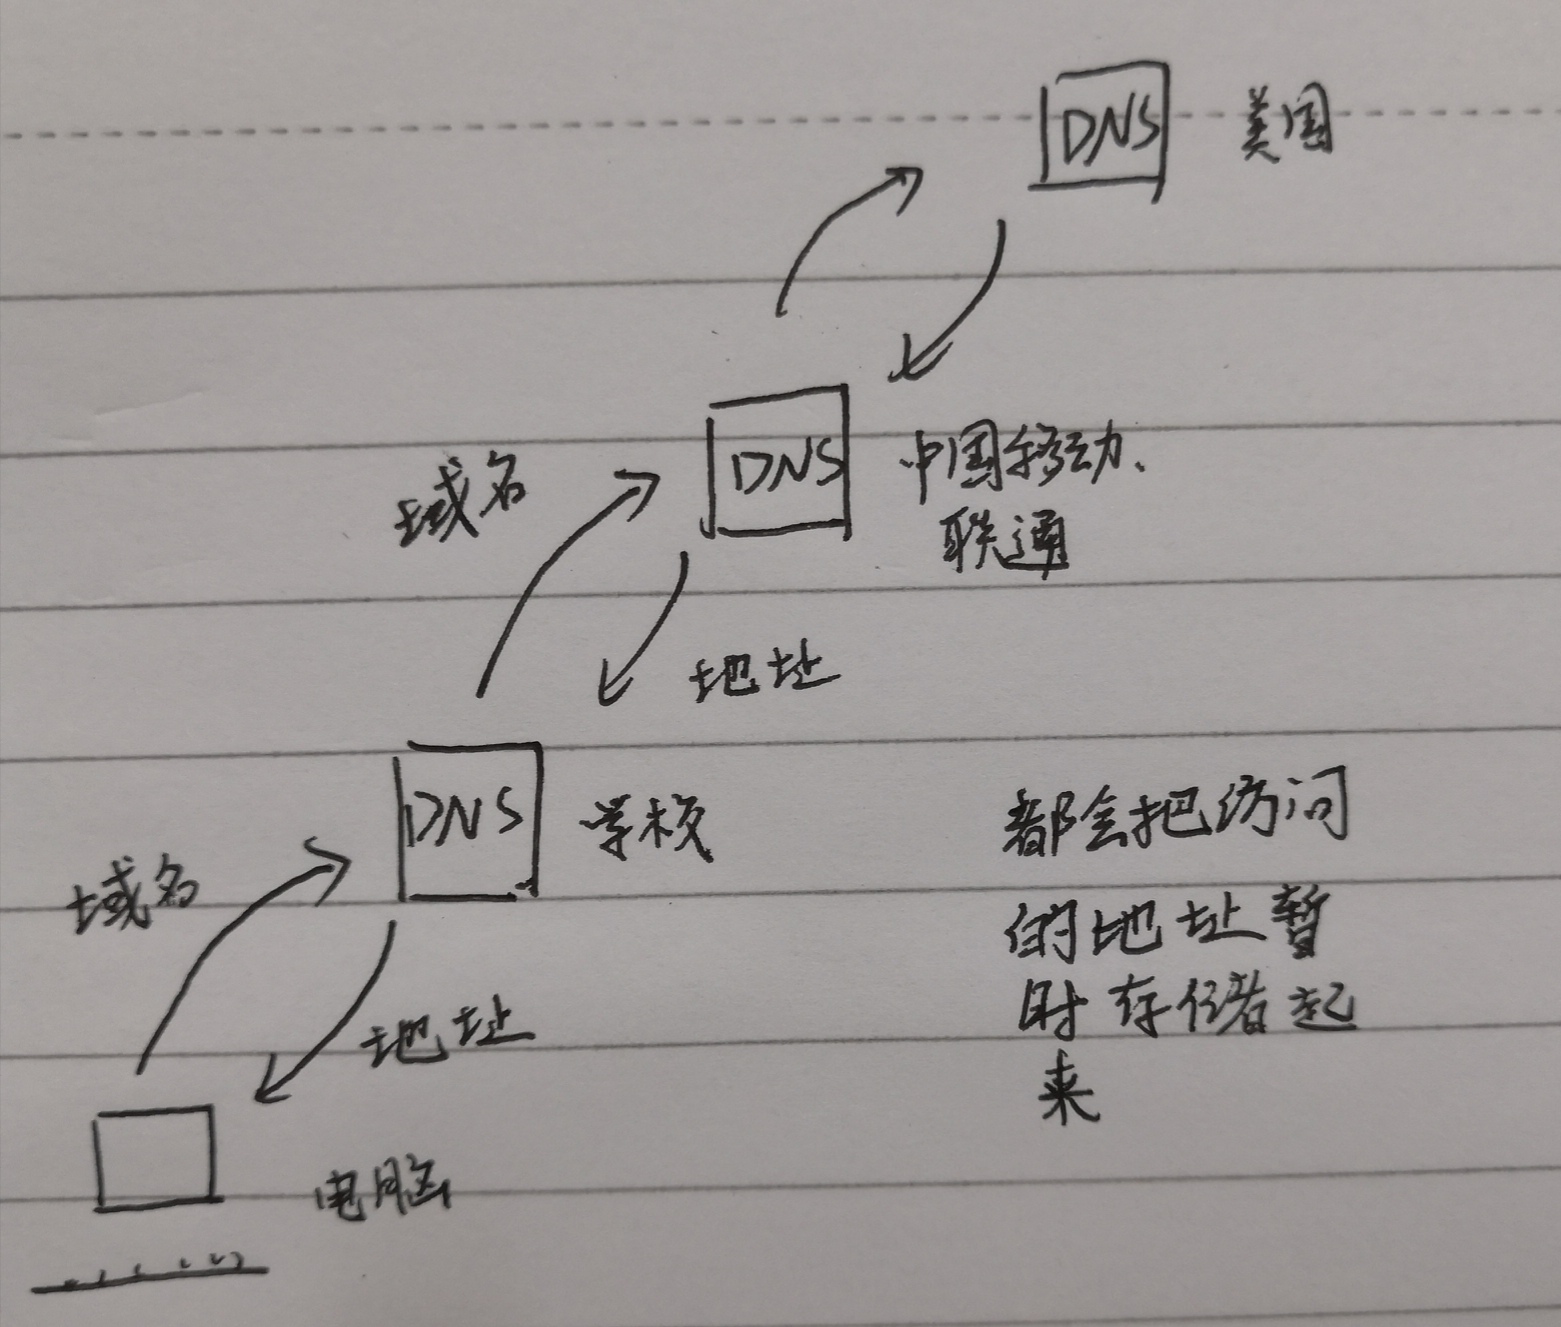 DNS 美国
域名
DNS 中国移动、
联通
地址
DNS 学校
域名
地址
电脑
都会把访问
的地址暂
时存储起
来